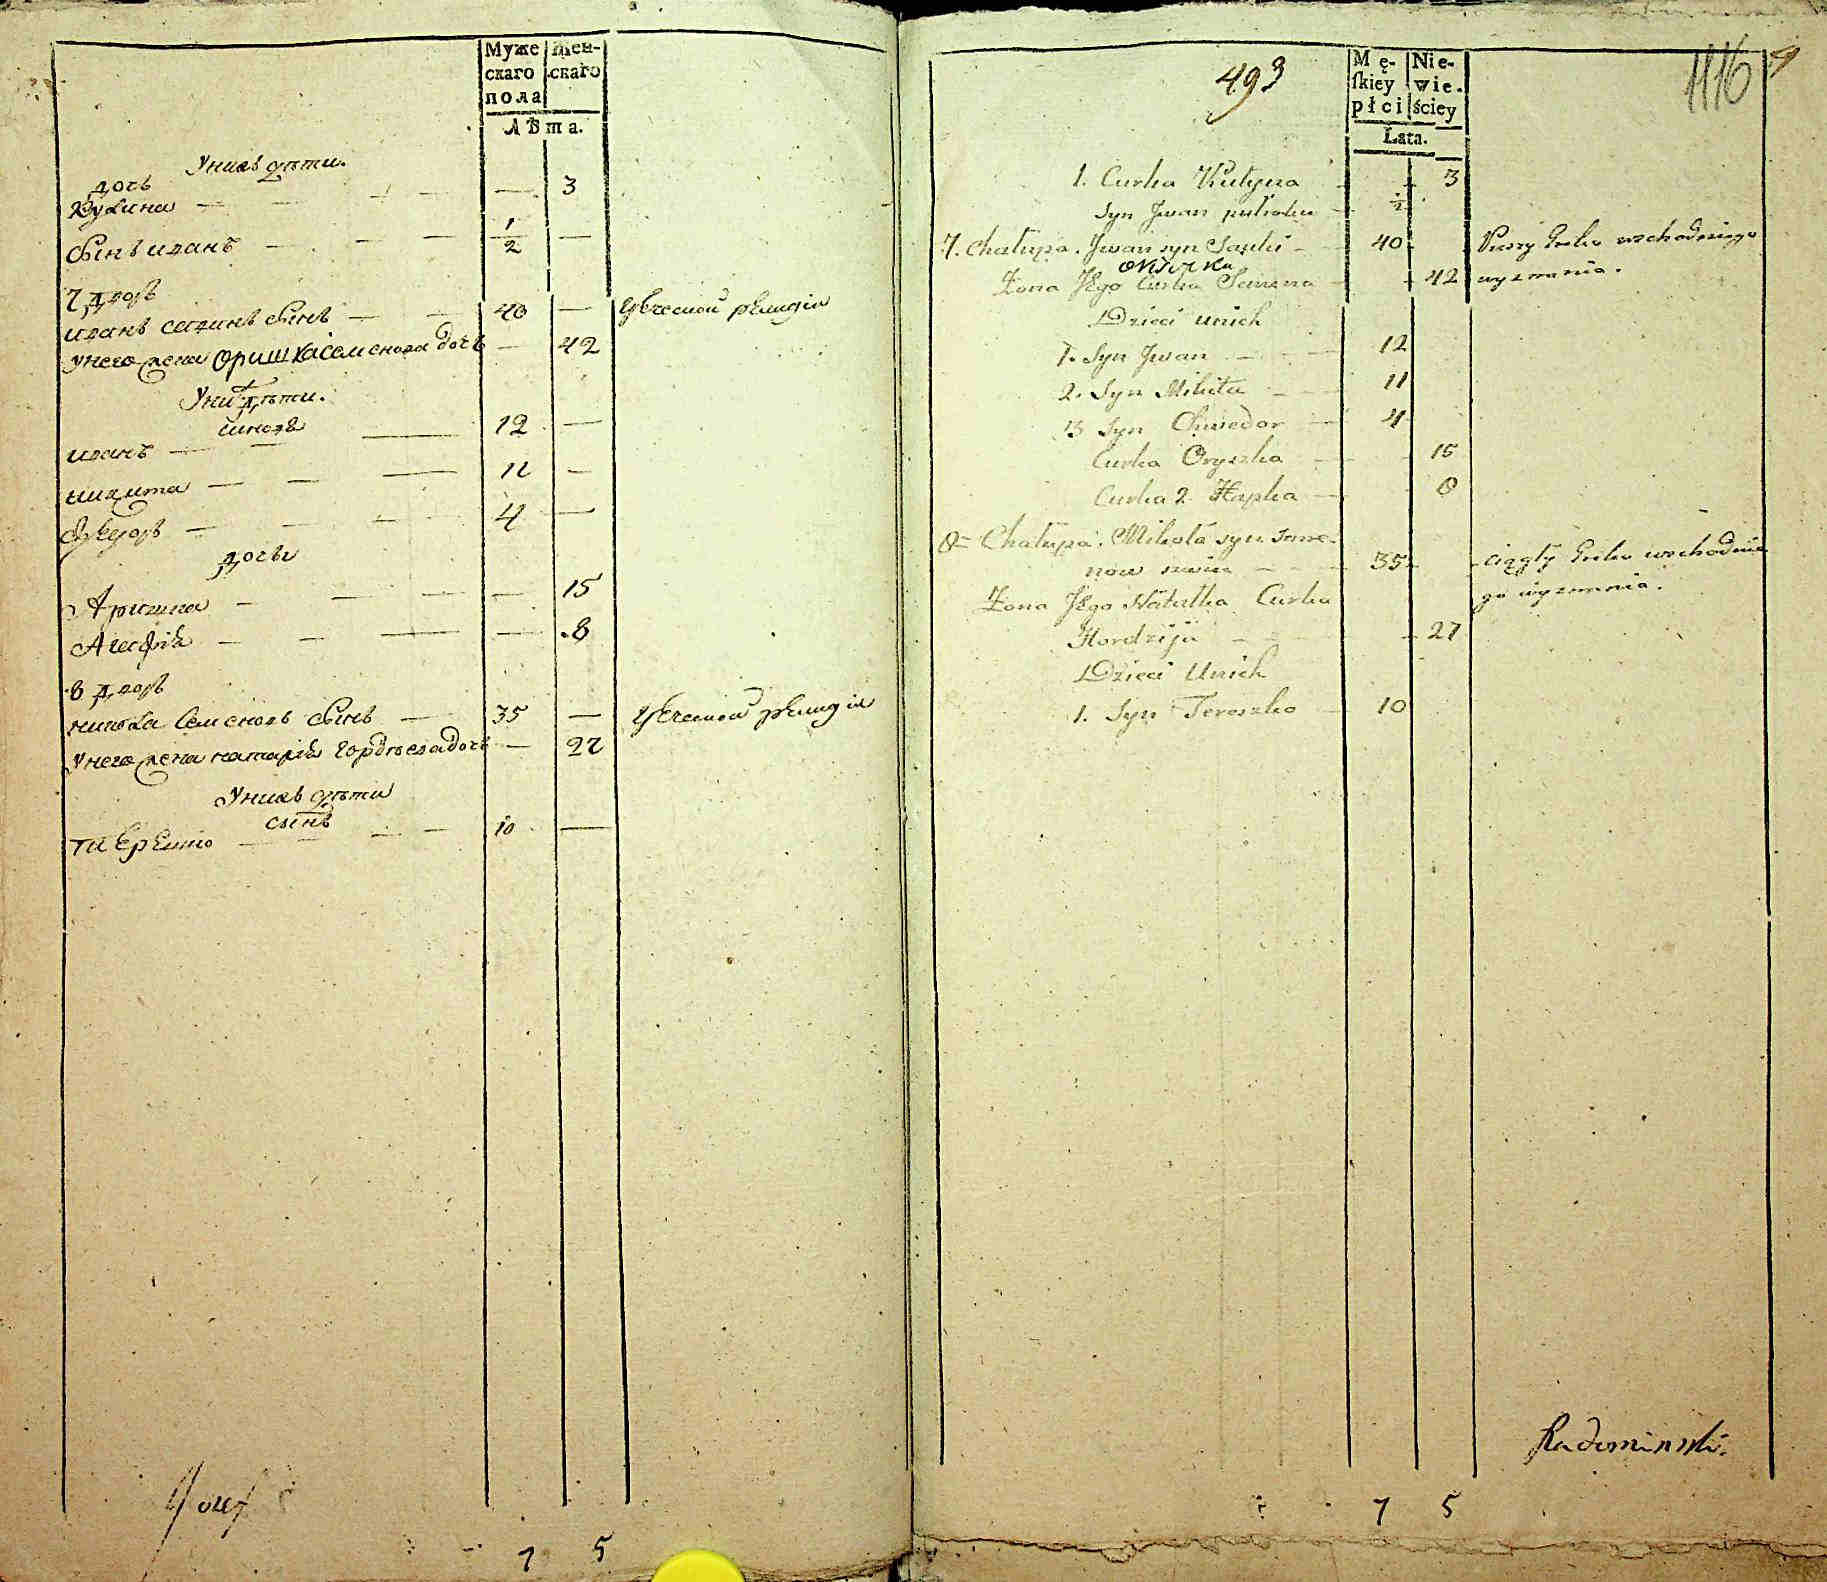 Муже
скаго
пола
Жен-
скаго
Лѣта.
У нихъ дѣти.
дочь
Кулина — — 3
Сынъ иванъ — 1/2 —
7 дворъ
иванъ савинъ Сынъ — 40 — Греческой религии
У него жена Оришка Семенова дочь — 42
У них дѣти.
Синовя
иванъ — 12 —
микита — 11 —
Федоръ — 4 —
дочьи
Аришка — 15
Агафия — 8
8 дворъ
микола Семеновъ Сынъ — 35 — Греческой религии
У него жена наталия Гордѣева дочь — 27
У нихъ дѣти
сынъ
10 —
7 5
493
1116
9
Mę-
skiey
płci
Nie-
wie-
ściey
Lata.
1. Curka Kulyna 3
Syn Jwan pułroku 1/2
7. Chałupa. Jwan syn Sawki 40 Pieszy Greko wschodniego
Oryszka
Żona Jego Curka Semena 42 wyznania.
Dzieci unich
1. Syn Jwan 12
2. Syn Mikita 11
3 Syn Chwedor 4
Curka Oryszka 15
Curka 2. Hapka 8
8 Chałupa. Mikoła syn Seme-
now 35 ciągły Greko wschodnie
Żona Jego Natałka Curka go wyznania.
Hordzija 27
Dzieci Unich
1. Syn Tereszko 10
Radominski.
7 5